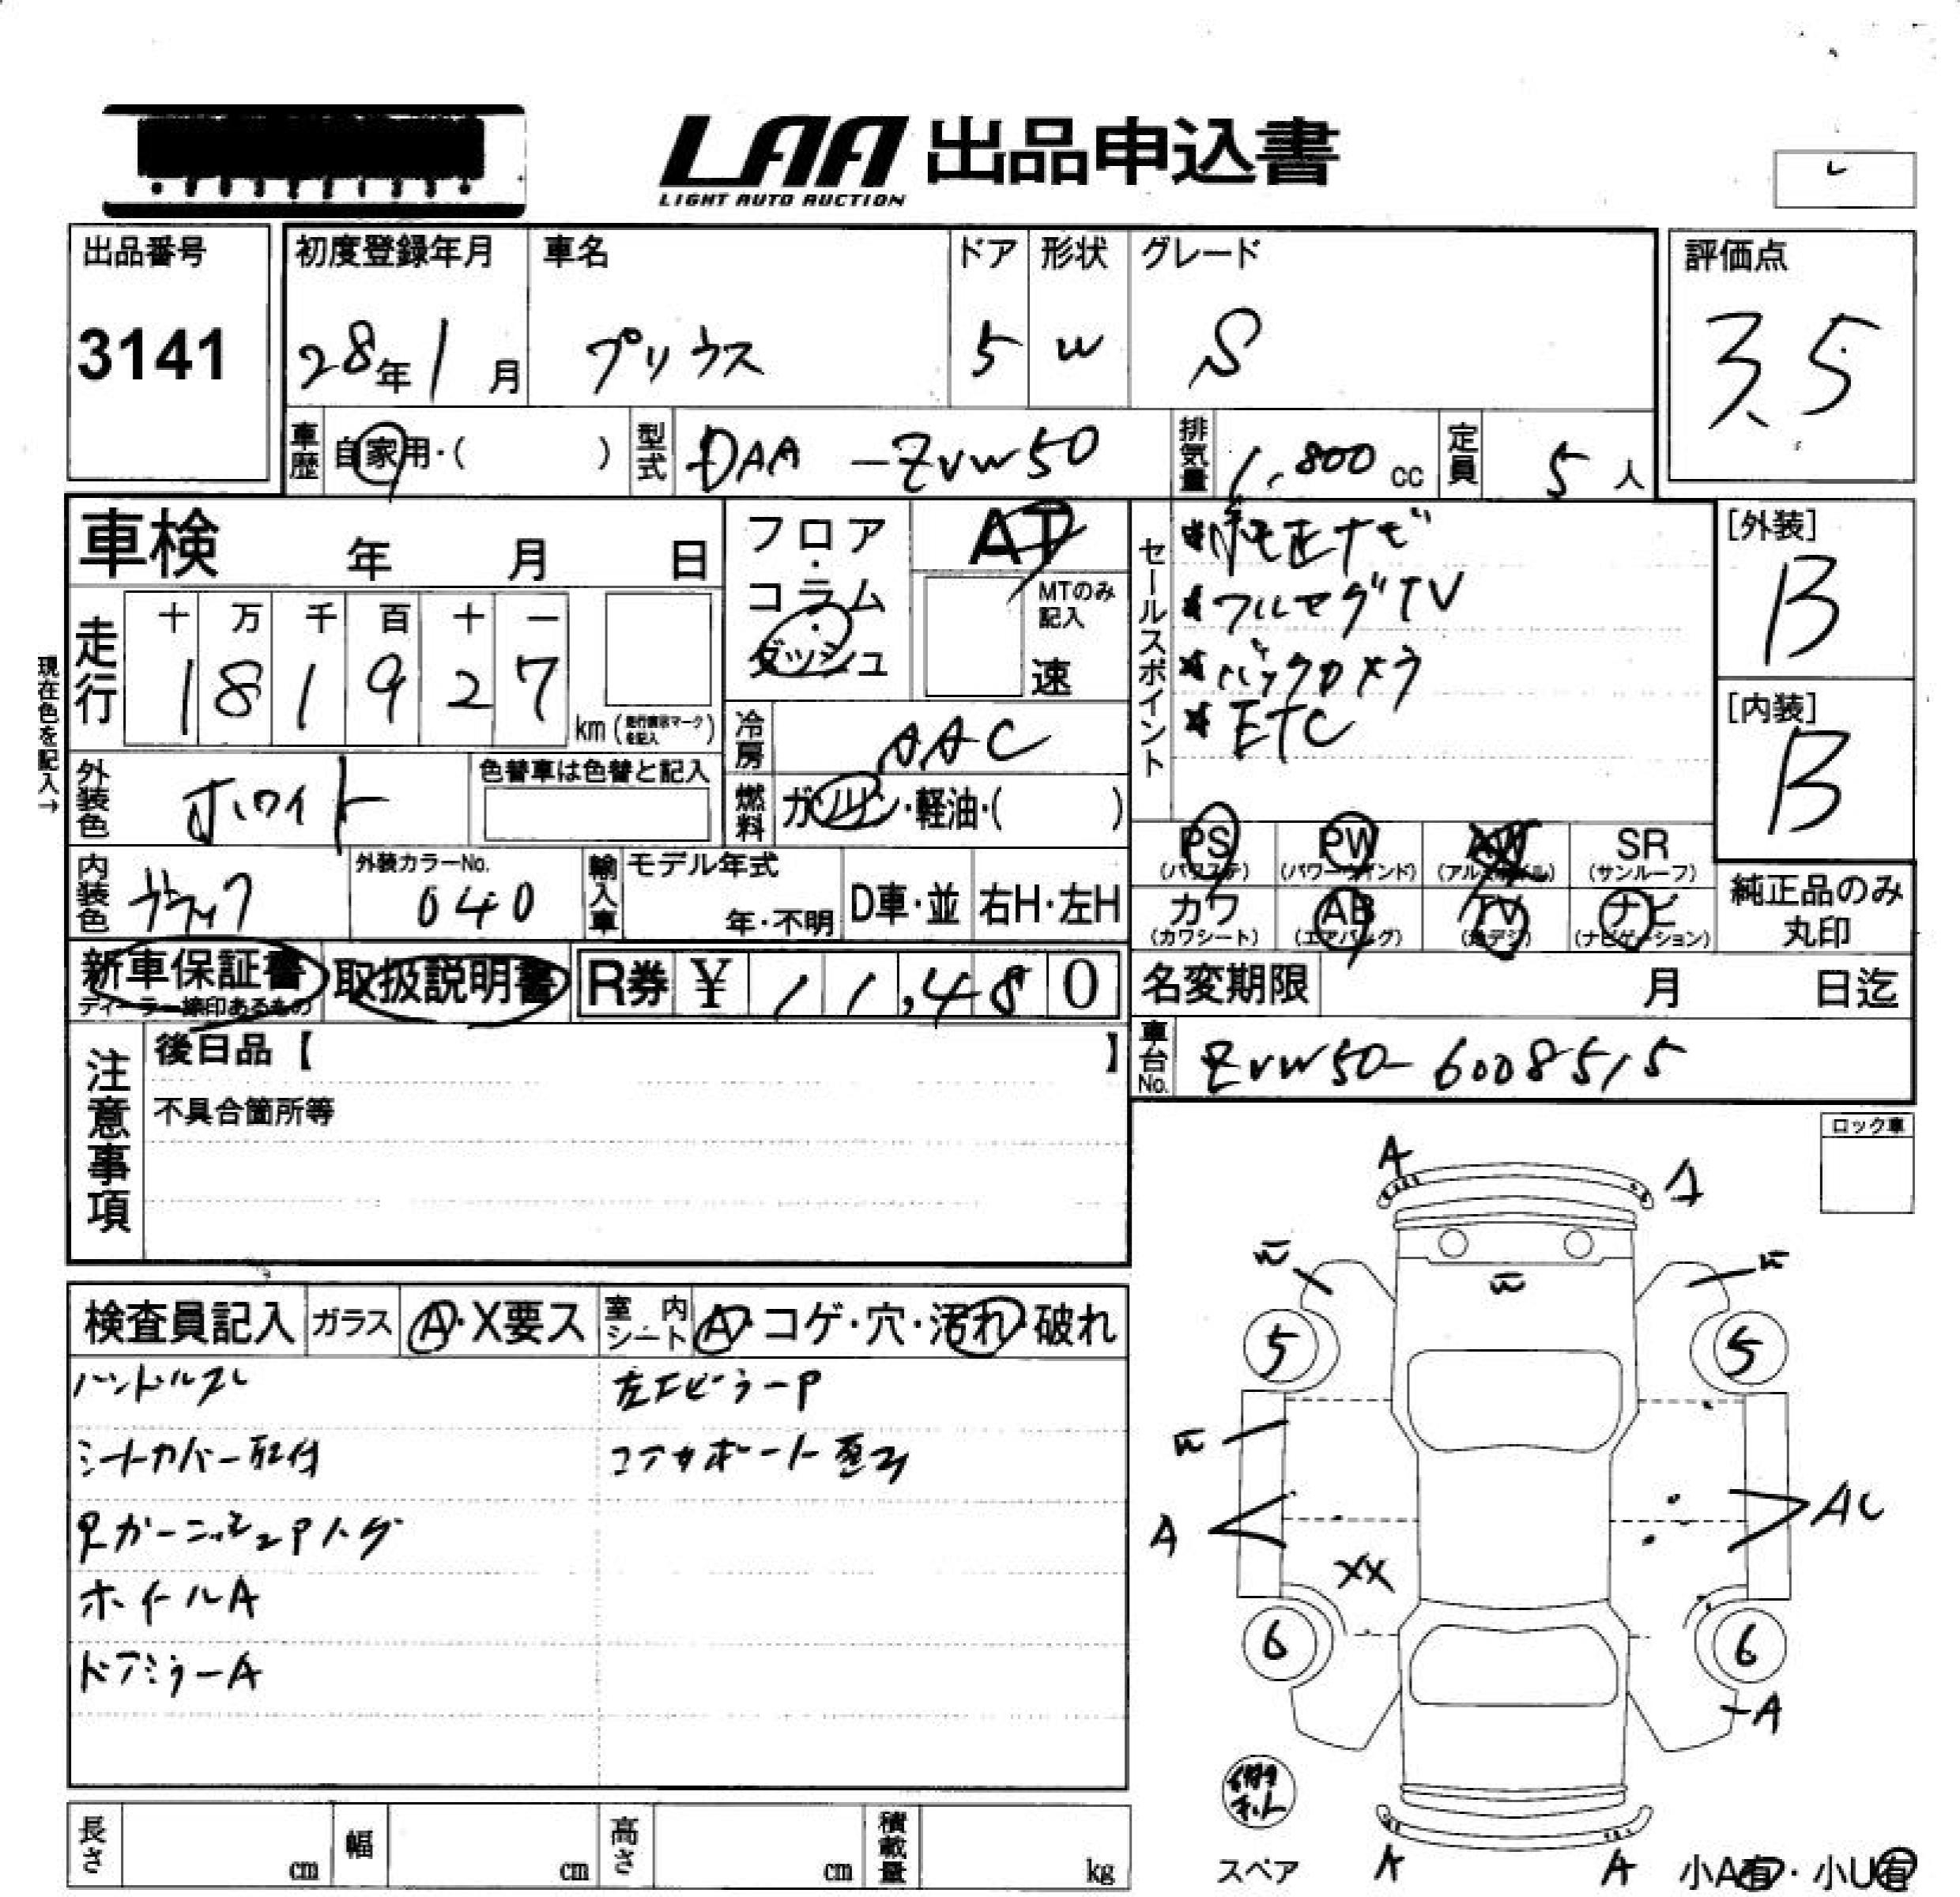 LAA 出品申込書
LIGHT AUTO AUCTION
出品番号
3141
初度登録年月 車名 ドア 形状 グレード
28年1月 プリウス 5 W S
評価点
3.5
車歴 自家用・( ) 型式 DAA-ZVW50 排気量 1,800cc 定員 5人
車検 年 月 日
フロア・コラム・ダッシュ
AT
MTのみ記入
速
セールスポイント
*純正ナビ
*フルセグTV
*バックカメラ
*ETC
[外装]
B
[内装]
B
現在色を記入→
走行 十 万 千 百 十 一
1 8 1 9 2 7 km(走行表示マークを記入)
冷房 AAC
外装色 ホワイト 色替車は色替と記入
燃料 ガソリン・軽油・( )
内装色 ブラック 外装カラーNo. 040
輸入車 モデル年式 年・不明 D車・並 右H・左H
PS (パワステ) PW (パワーウインド) AW (アルミホイル) SR (サンルーフ)
カワ (カワシート) AB (エアバッグ) TV (地デジ) ナビ (ナビゲーション)
純正品のみ丸印
新車保証書 ディーラー捺印あるもの 取扱説明書 R券 ¥ 11,480
名変期限 月 日迄
車台No. ZVW50-6008515
注意事項
後日品【 】
不具合箇所等
ロック車
検査員記入 ガラス A・X要ス 室内シート A・コゲ・穴・汚れ・破れ
ハンドルスレ
シートカバー取付
Rガーニッシュ P ハゲ
ホイールA
ドアミラーA
左Fピラー P
コアサポート歪み
A A
W W W
5 5
W
A AU
XX
6 6
A
スペア
A A
小A有・小U有
長さ cm 幅 cm 高さ cm 積載量 kg